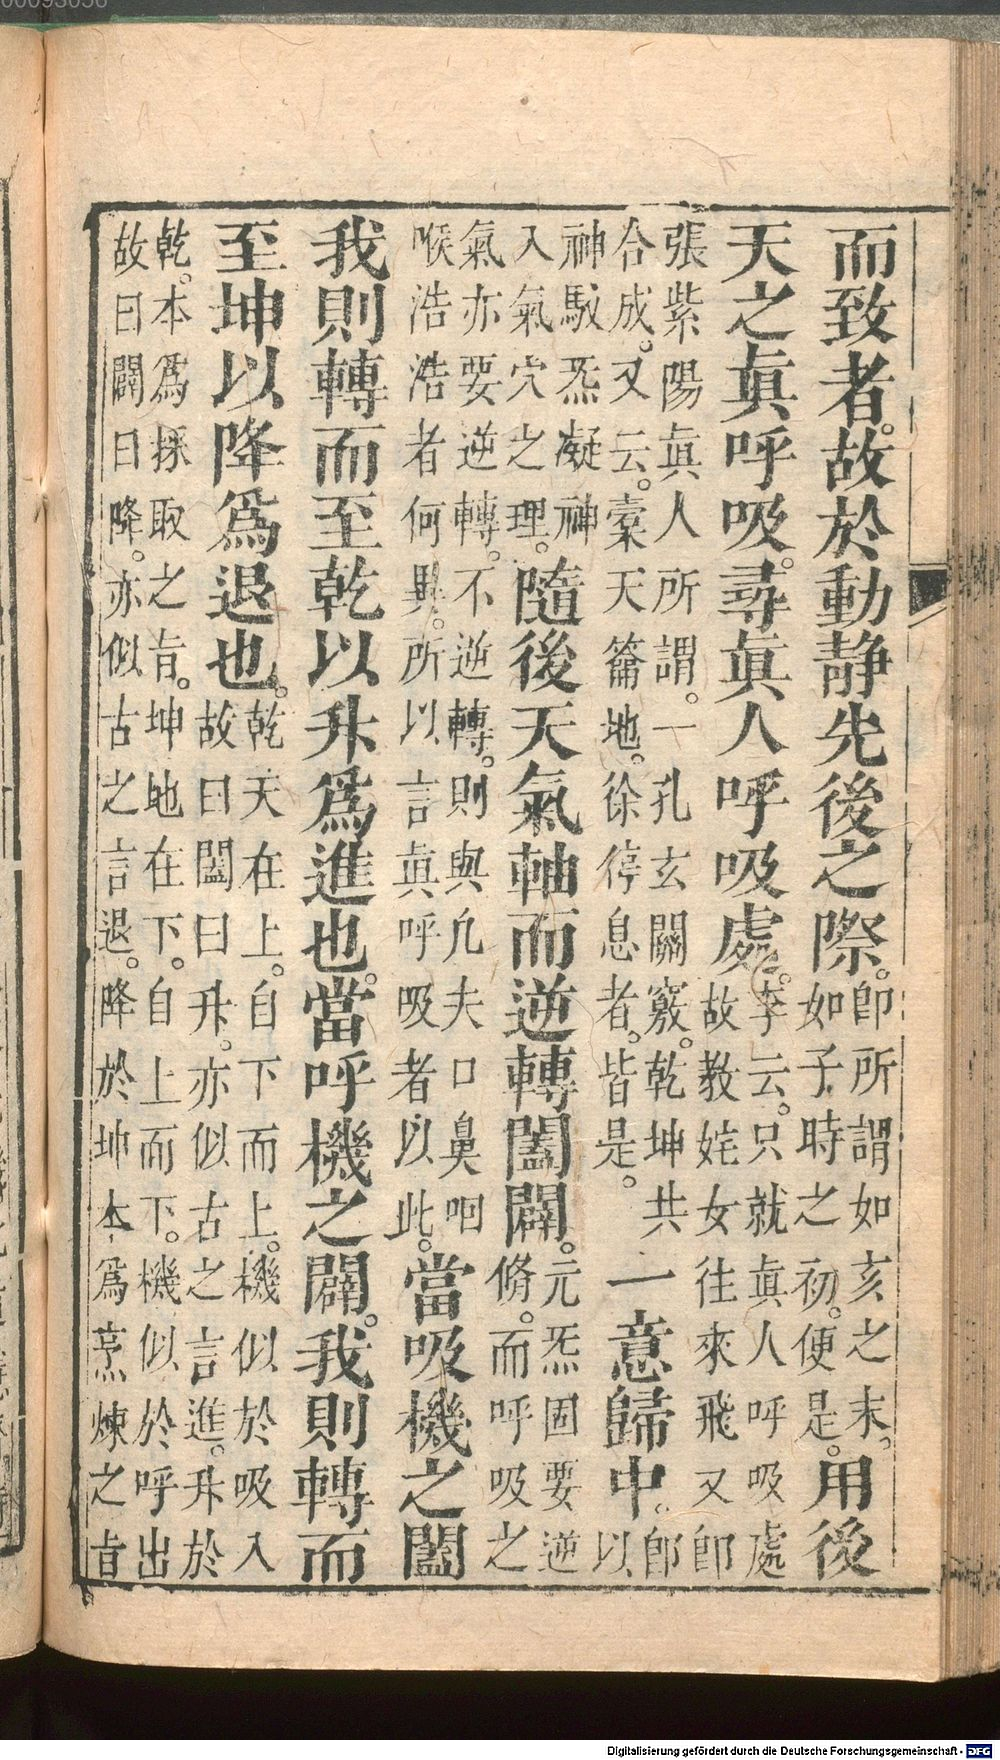 00093056
而致者。故於動靜先後之際。卽所謂如亥之末。
如子時之初。便是。用後
天之眞呼吸。尋眞人呼吸處。李云。只就眞人呼吸處
故教姹女往來飛又卽
張紫陽眞人所謂。一孔玄關竅。乾坤共
合成。又云。槖天籥地。徐停息者。皆是。一意歸中。卽
以
神馭炁凝神
入氣穴之理。隨後天氣軸而逆轉闔闢。元炁固要逆
脩。而呼吸之
氣亦要逆轉。不逆轉。則與凢夫口鼻咽
喉浩浩者何異。所以言眞呼吸者以此。當吸機之闔
我則轉而至乾以升爲進也。當呼機之闢。我則轉而
至坤以降爲退也。乾天在上。自下而上。機似於吸入
故曰闔曰升。亦似古之言進。升於
乾。本爲採取之旨。坤地在下。自上而下。機似於呼出
故曰闢曰降。亦似古之言退。降於坤本爲烹煉之旨
Digitalisierung gefördert durch die Deutsche Forschungsgemeinschaft - DFG